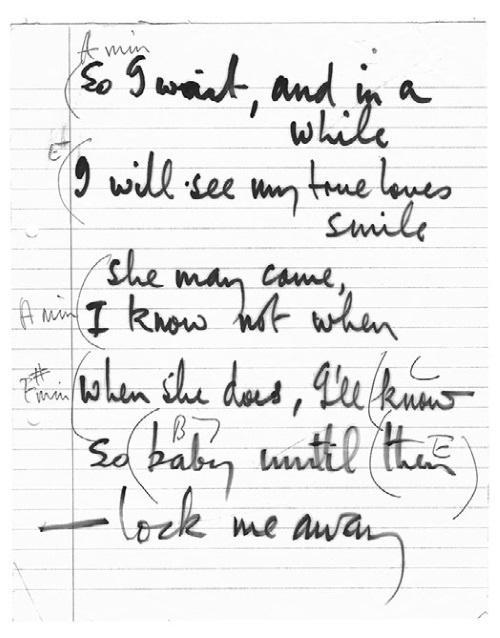 A min
So I wait, and in a
while
E+
I will see my true loves
smile
she may come,
A min
I know not when
F# min
When she does, I'll know
C
B 7
E
So baby until then
— lock me away